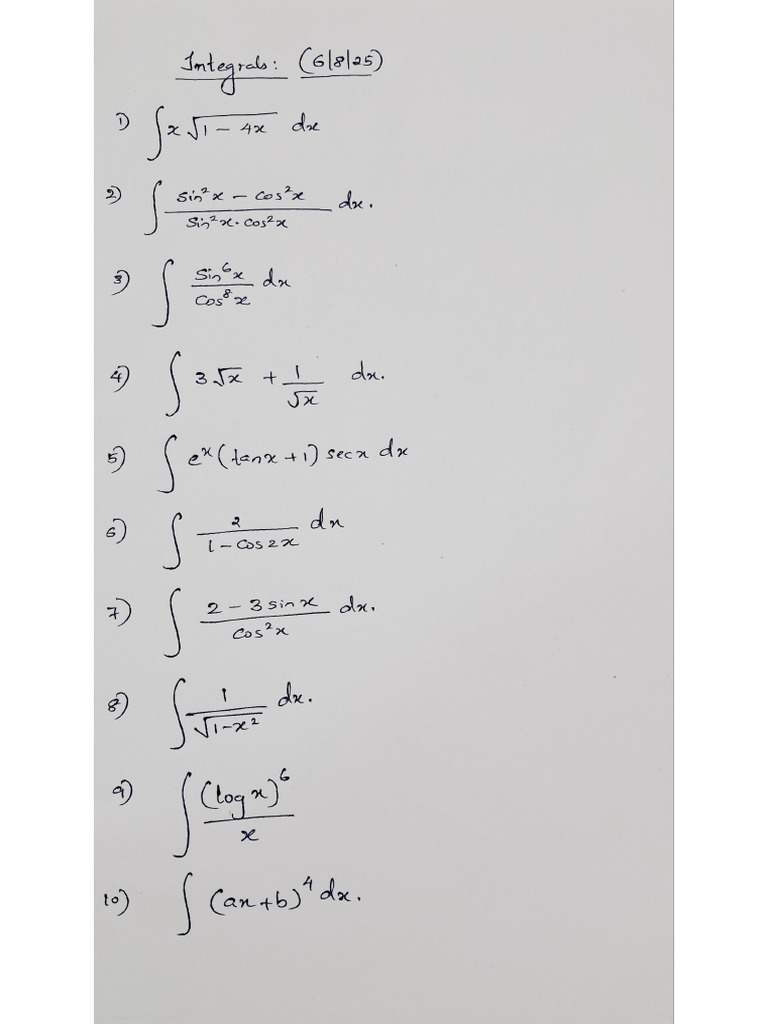 Integrals: (6|8|25)
1) ∫ x √(1 - 4x) dx
2) ∫ (sin²x - cos²x)/(sin²x · cos²x) dx.
3) ∫ sin⁶x/cos⁸x dx
4) ∫ 3√x + 1/√x dx.
5) ∫ eˣ(tanx + 1) secx dx
6) ∫ 2/(1 - cos2x) dx
7) ∫ (2 - 3sinx)/cos²x dx.
8) ∫ 1/√(1-x²) dx.
9) ∫ (logx)⁶/x
10) ∫ (ax+b)⁴ dx.